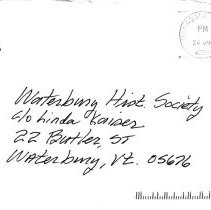 PM
Waterbury Hist. Society
c/o Linda Kaiser
22 Butler ST
Waterbury, Vt. 05676